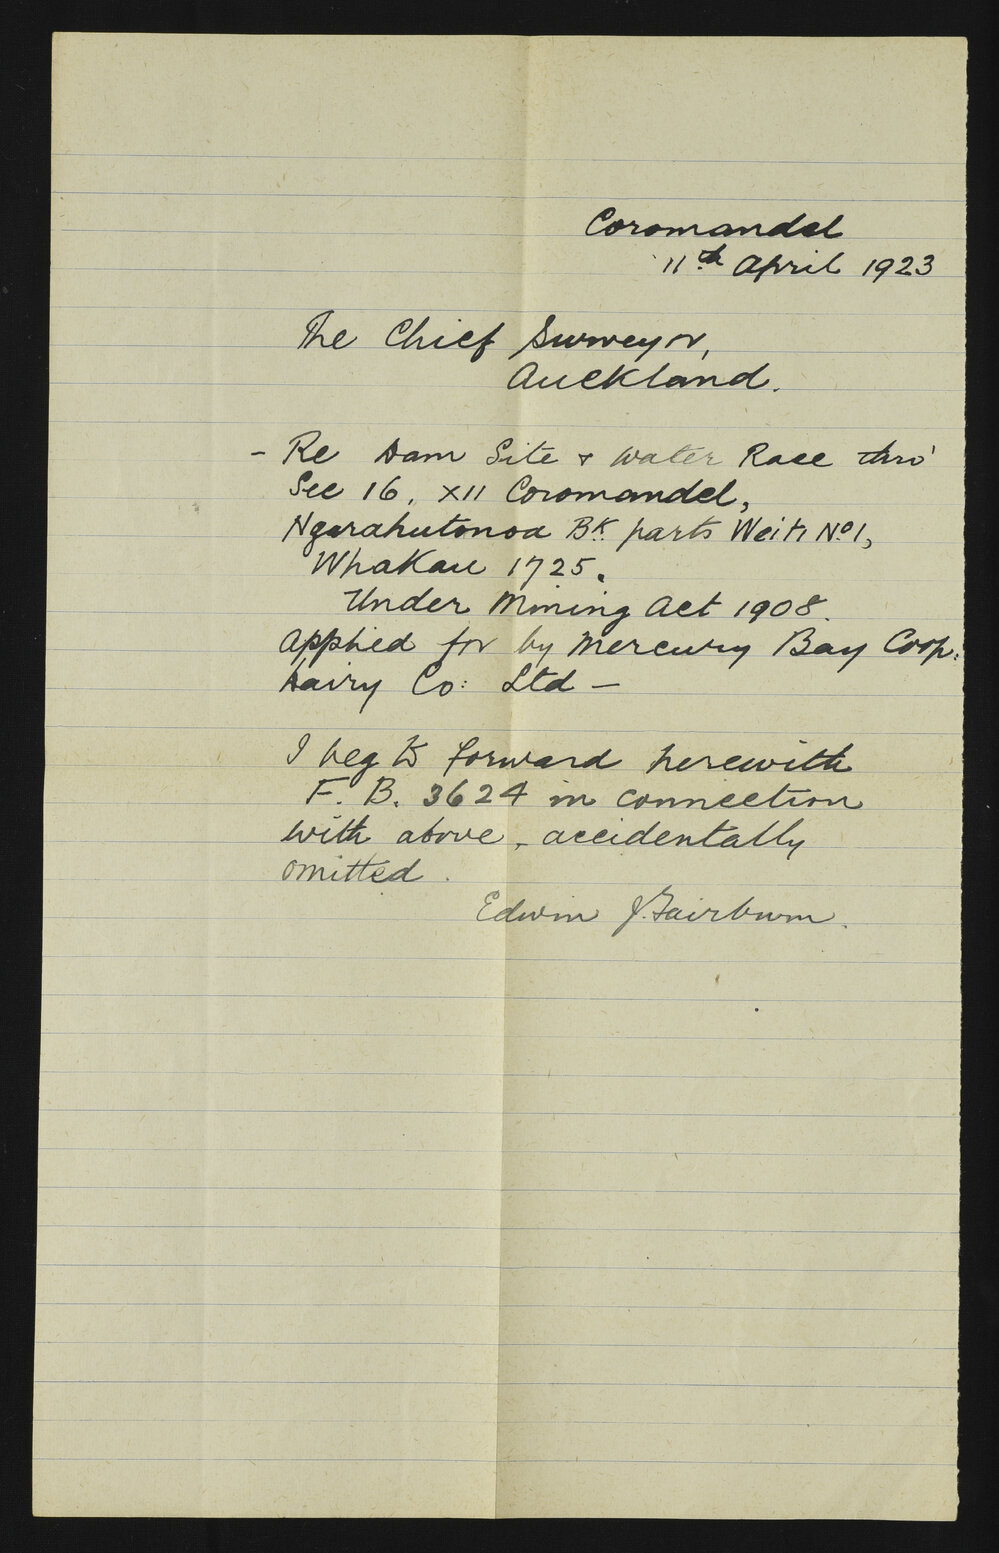 Coromandel
11th April 1923
The Chief Surveyor,
Auckland.
- Re Dam Site & Water Race thro'
Sec 16, XII Coromandel,
Ngarahutonoa Bk. parts Weiti No 1,
Whakau 1725.
Under Mining Act 1908.
Applied for by Mercury Bay Coop:
Dairy Co: Ltd -
I beg to forward herewith
F. B. 3624 in connection
with above, accidentally
omitted.
Edwin J. Fairburn.